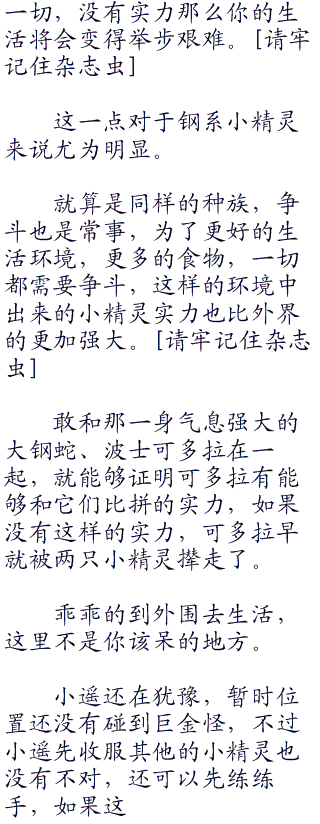 一切，没有实力那么你的生
活将会变得举步艰难。[请牢
记住杂志虫]
这一点对于钢系小精灵
来说尤为明显。
就算是同样的种族，争
斗也是常事，为了更好的生
活环境，更多的食物，一切
都需要争斗，这样的环境中
出来的小精灵实力也比外界
的更加强大。[请牢记住杂志
虫]
敢和那一身气息强大的
大钢蛇、波士可多拉在一
起，就能够证明可多拉有能
够和它们比拼的实力，如果
没有这样的实力，可多拉早
就被两只小精灵撵走了。
乖乖的到外围去生活，
这里不是你该呆的地方。
小遥还在犹豫，暂时位
置还没有碰到巨金怪，不过
小遥先收服其他的小精灵也
没有不对，还可以先练练
手，如果这